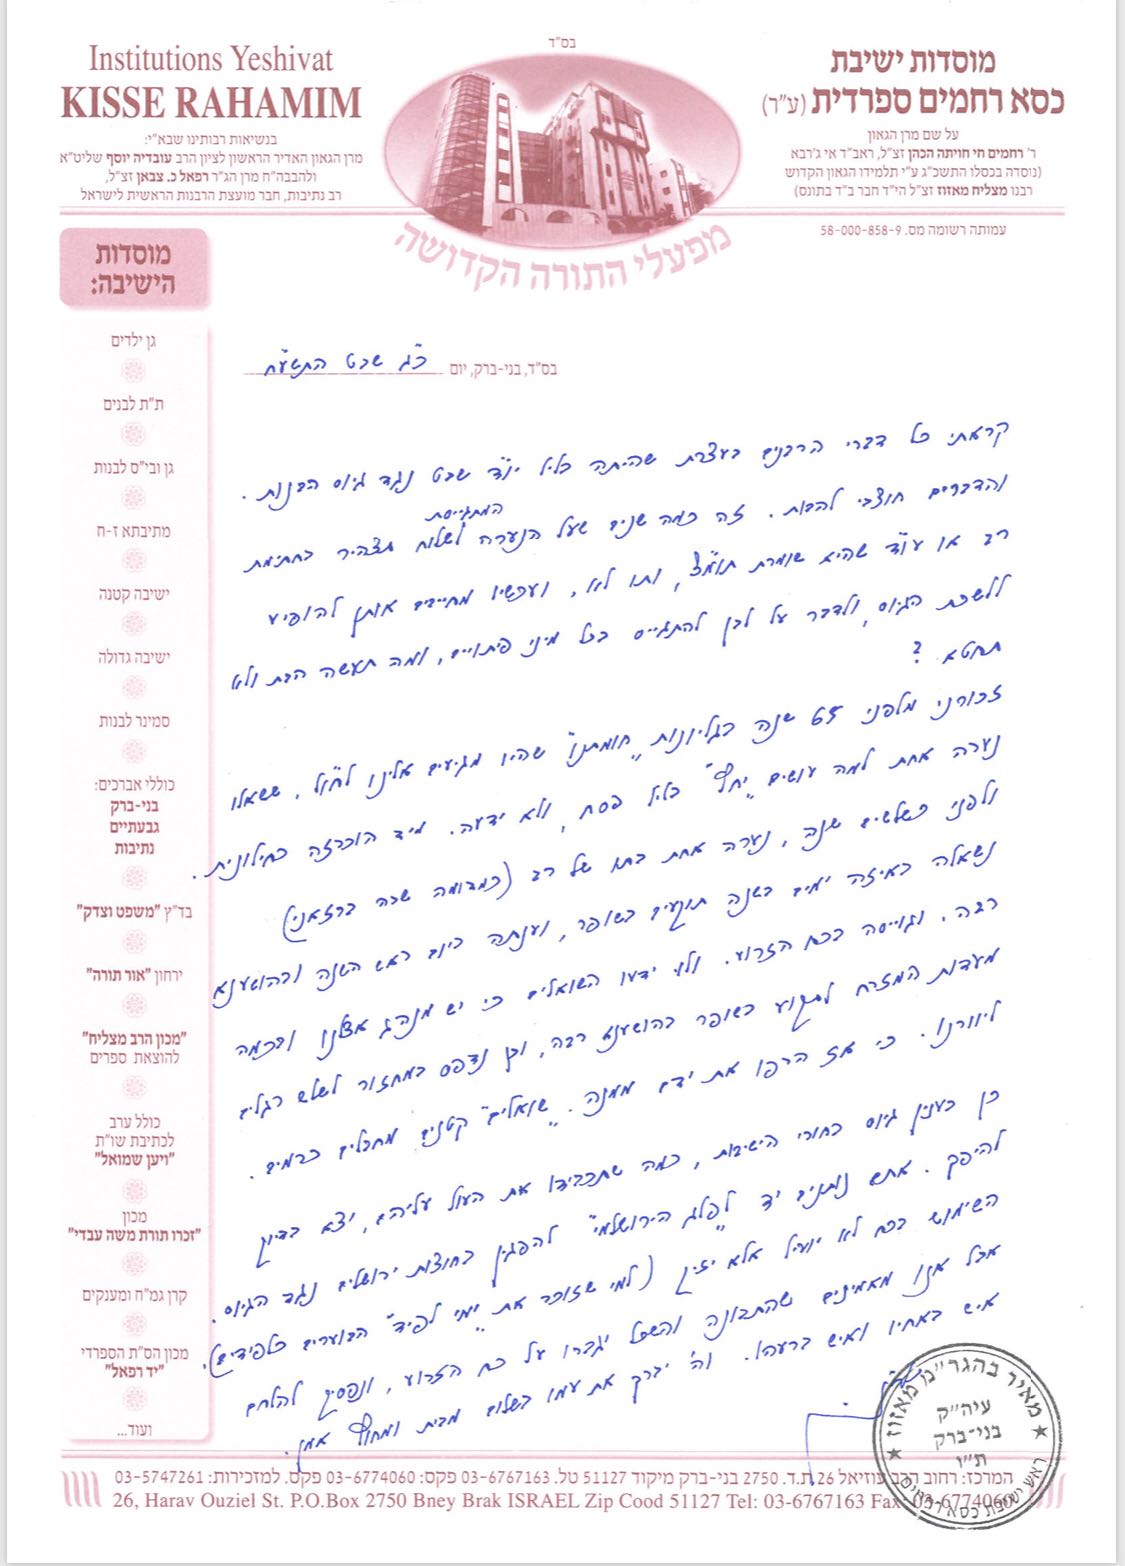 בס"ד
Institutions Yeshivat
KISSE RAHAMIM
בנשיאות רבותינו שבא"י:
מרן הגאון האדיר הראשון לציון הרב עובדיה יוסף שליט"א
ולהבבה"ח מרן הג"ר רפאל כ. צבאן זצ"ל,
רב נתיבות, חבר מועצת הרבנות הראשית לישראל
מוסדות ישיבת
כסא רחמים ספרדית (ע"ר)
על שם מרן הגאון
ר' רחמים חי חויתה הכהן זצ"ל, ראב"ד אי ג'רבא
(נוסדה בכסלו התשכ"ג ע"י תלמידו הגאון הקדוש
רבנו מצליח מאזוז זצ"ל הי"ד חבר ב"ד בתונס)
עמותה רשומה מס. 58-000-858-9
מפעלי התורה הקדושה
מוסדות
הישיבה:
גן ילדים
ת"ת לבנים
גן ובי"ס לבנות
מתיבתא ז-ח
ישיבה קטנה
ישיבה גדולה
סמינר לבנות
כוללי אברכים:
בני-ברק
גבעתיים
נתיבות
בד"ץ "משפט וצדק"
ירחון "אור תורה"
"מכון הרב מצליח"
להוצאת ספרים
כולל ערב
לכתיבת שו"ת
"ויען שמואל"
מכון
"זכרו תורת משה עבדי"
קרן גמ"ח ומענקים
מכון הס"ת הספרדי
"יד רפאל"
ועוד...
בס"ד, בני-ברק, יום כ"ג שבט התשע"ח
קראתי כל דברי הרבנים בעצרת שהיתה בליל יו"ד שבט נגד גיוס הבנות.
והדברים חוצבי להבות. זה כמה שנים שעל הנערה המתגייסת לשלוח תצהיר בחתימת
רב או עו"ד שהיא שומרת תומ"צ, ותו לא, ועכשיו מחייבים אותן להופיע
ללשכת הגיוס, ולדבר על לבן להתגייס בכל מיני פיתויים, ומה תעשה הבת ולא
תחטא?
זכורני מלפני 65 שנה בגליונות "חומתנו" שהיו מגיעים אלינו לחו"ל, ששאלו
נערה אחת למה עושים "יחץ" בליל פסח, ולא ידעה. מיד הוכרזה כחילונית.
ולפני כשלשים שנה, נערה אחת בתו של רב (כמדומה שרה ברזאני)
נשאלה באיזה ימים בשנה תוקעים בשופר, וענתה ביום ראש השנה ובהושענא
רבה. וגוייסה בכח הזרוע. ולו ידעו השואלים כי יש מנהג אצלנו ובכמה
מעדות המזרח לתקוע בשופר בהושענא רבה, וכן נדפס במחזור לשלש רגלים
ליוורנו. כי אז הרפו את ידם ממנה. "שואלים" קטנים מחבלים כרמים.
כן בענין גיוס בחורי הישיבות, כמה שתכבידו את העול עליהם, יצא בדיוק
להיפך. אתם נותנים יד ל"פלג הירושלמי" להפגין בחוצות ירושלים נגד הגיוס.
השימוש בכח לא יועיל אלא יזיק (למי שזוכר את "ימי לפיד" הבוערים כלפידים).
אבל אנו מאמינים שהתבונה והשכל יגברו על כח הזרוע, ונפסיק להלחם
איש באחיו ואיש ברעהו. וה' יברך את עמו בשלום מבית ומחוץ אמן.
מאיר בהגר"מ מאזוז
עיה"ק
בני-ברק
ת"ו
ראש ישיבת כסא רחמים
המרכז: רחוב הרב עוזיאל 26 ת.ד. 2750 בני-ברק מיקוד 51127 טל. 03-6767163 פקס: 03-6774060 פקס. למזכירות: 03-5747261
26, Harav Ouziel St. P.O.Box 2750 Bney Brak ISRAEL Zip Cood 51127 Tel: 03-6767163 Fax: 03-6774060